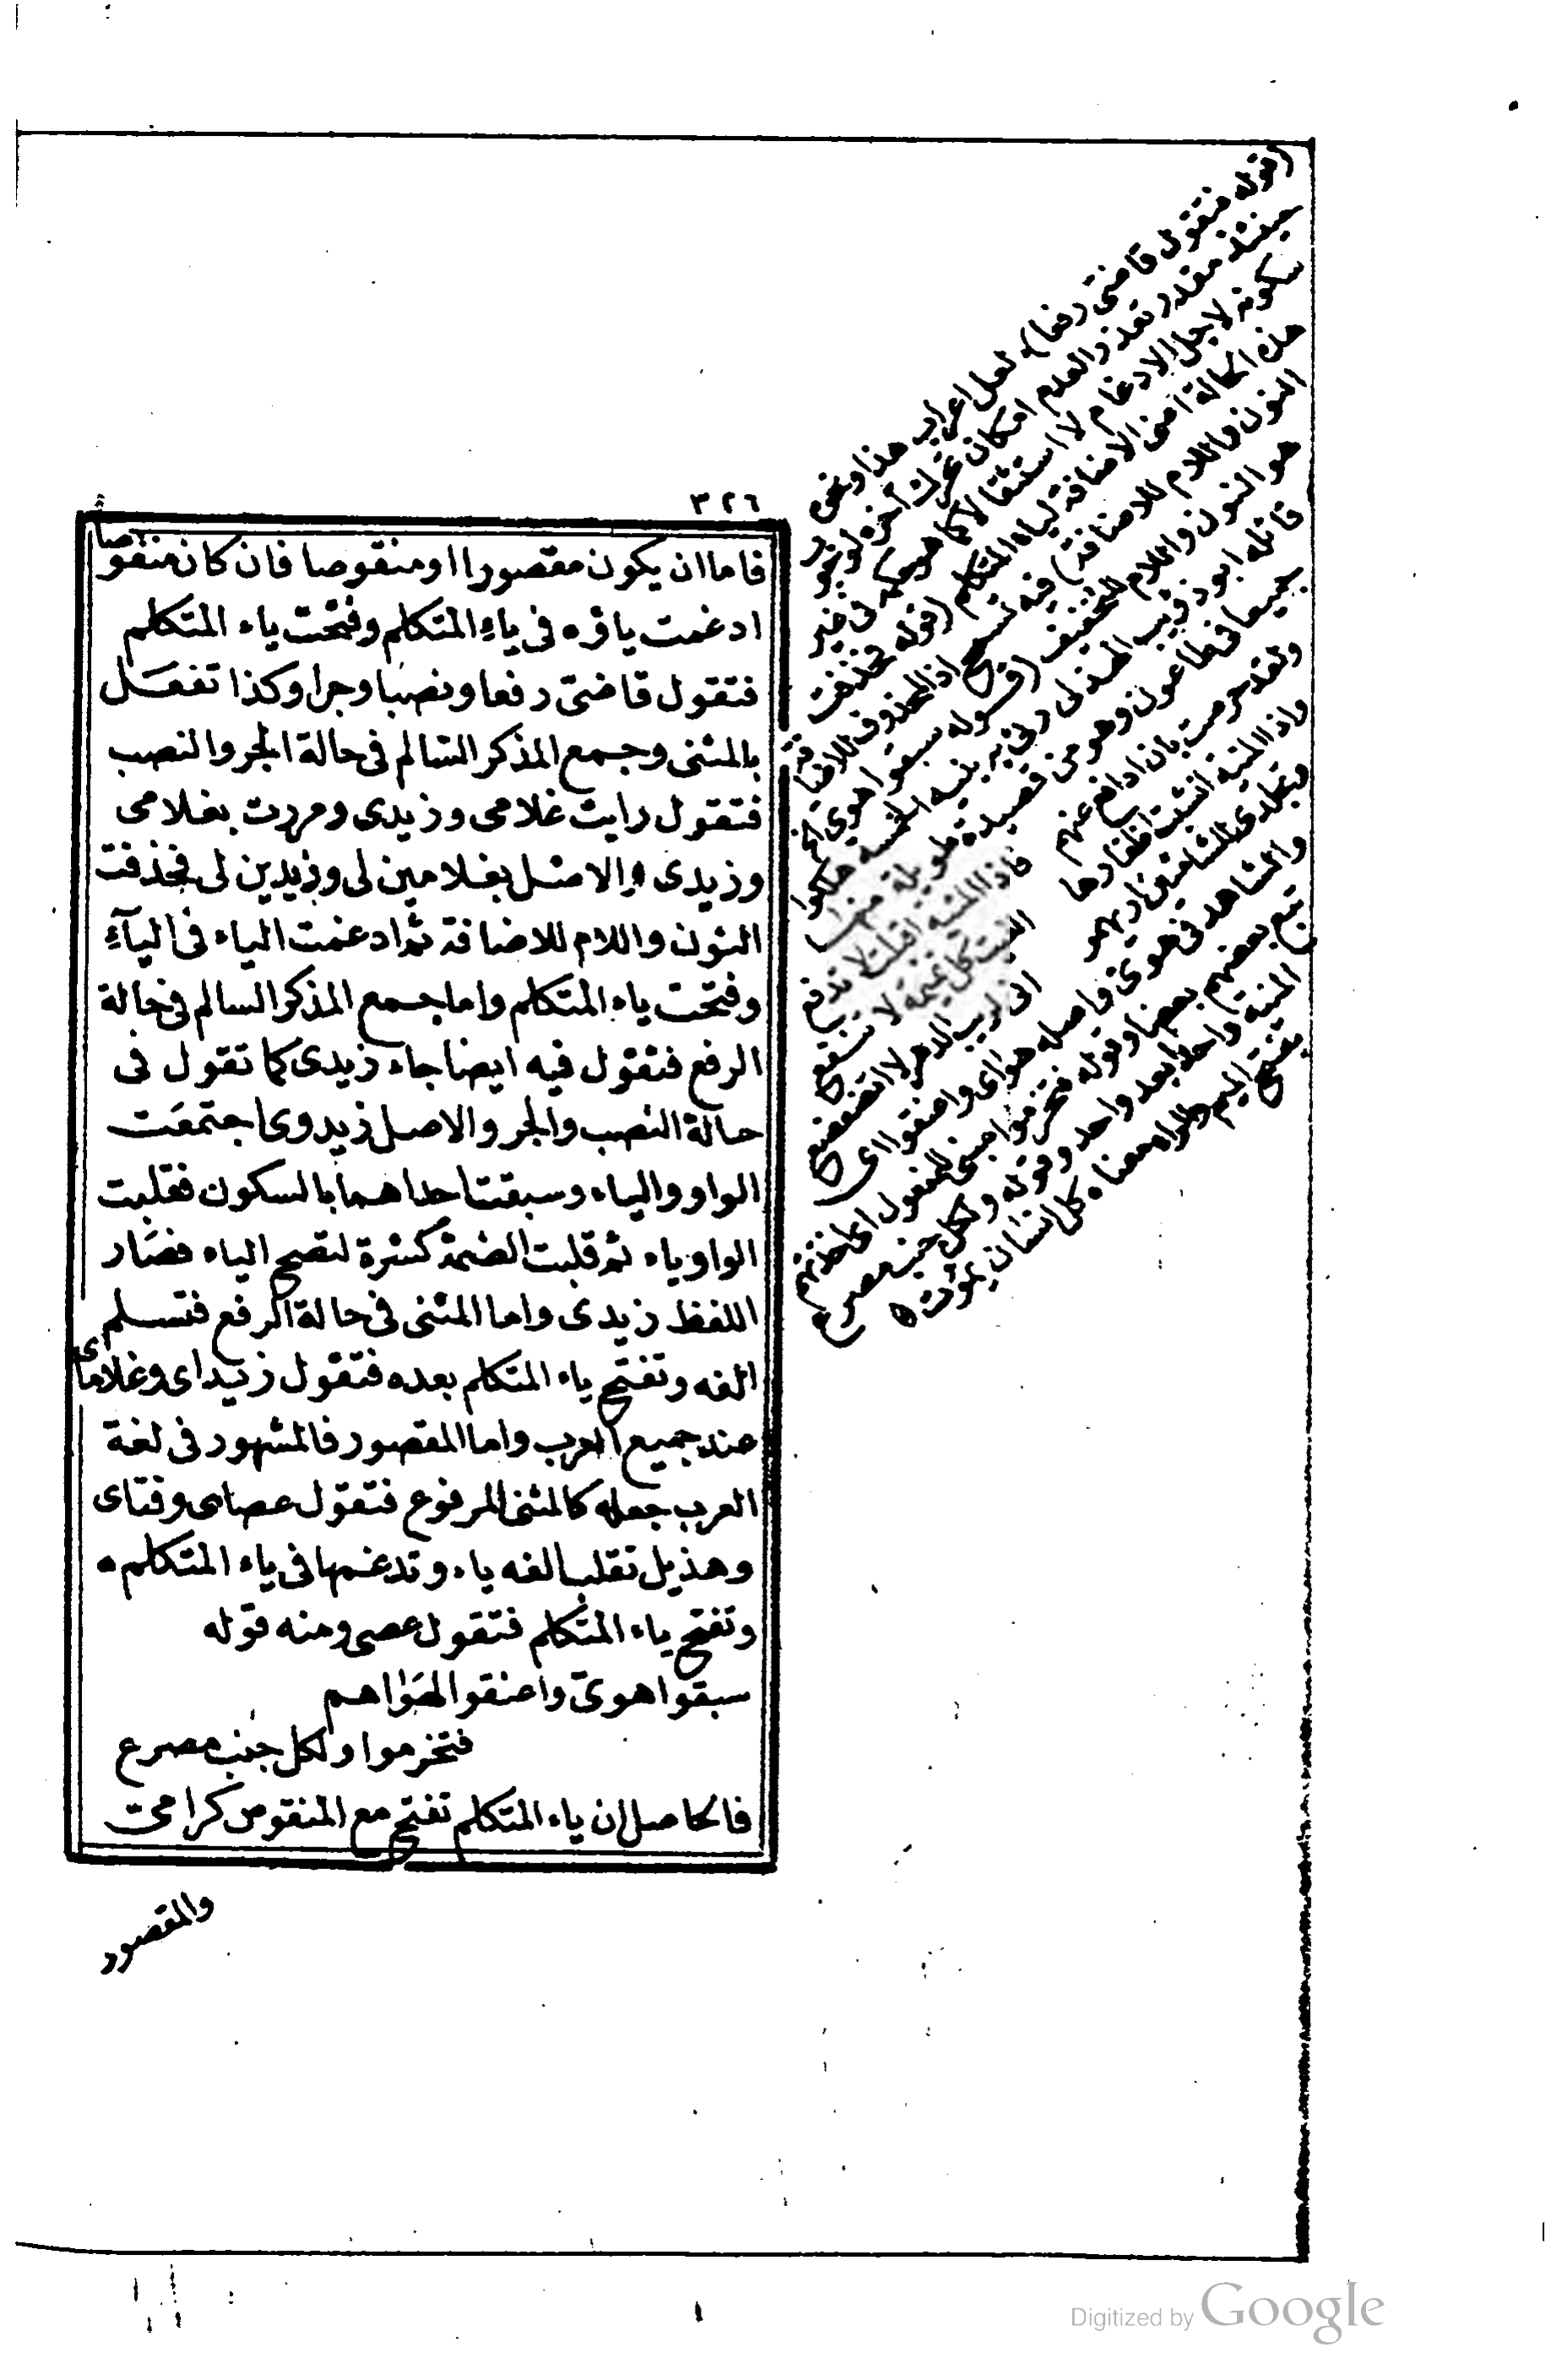 ٣٢٦
فاما ان يكون مقصورا او منقوصا فان كان منقوصا
ادغمت ياؤه فى ياءِ المتكلم وفتحت ياء المتكلم
فتقول قاضىّ رفعا ونصبا وجرا وكذا تفعَل
بالمثنى وجمع المذكر السالم فى حالة الجر والنصب
فتقول رايت غلامى وزيدى ومررت بغلامى
وزيدى والاصل بغلامين لى وزيدين لى فحذفت
النون واللام للاضافة ثم ادغمت الياء فى اليآءِ
وفتحت ياء المتكلم واما جمع المذكر السالم فى حالة
الرفع فتقول فيه ايضا جاء زيدى كما تقول فى
حالة النصب والجر والاصل زيدوى اجتمعَت
الواو والياء وسبقت احداهما بالسكون فقلبت
الواو ياء ثم قلبت الضمة كسرة لتصح الياء فصَار
اللفظ زيدى واما المثنى فى حالة الرفع فتسلم
الفه وتفتح ياء المتكلم بعده فتقول زيداى وغلاماى
عند جميع العرب واما المقصور فالمشهور فى لغة
العرب جعله كالمثنى المرفوع فتقول عصاى وفتاى
وهذيل تقلب الفه ياء وتدغمها فى ياء المتكلم ه
وتفتح ياء المتكلم فتقول عصى ومنه قوله
سبقوا هوىّ واعنقوا لهَوَاهم
فتخرموا ولكل جنب مصرع
فالحاصل ان ياء المتكلم تفتح مع المنقوص كرامىّ
والمقصور
(قوله فتقول قاضىّ رفعا) لعل اعراب هذا ونحوه
حينئذ مقدر تعذر العدم امكان تحرك اخره لوجوب
سكونه لاجل الادغام لا استثقالا كما هو حكمه فى غير
هذه الحالة اعنى الاضافة لياء المتكلم (قوله فحذفت
النون واللام للاضافة) فيه تسمح اذ المحذوف للاضافة
هو النون واللام للتخفيف (قوله سبقوا هوى الخ)
قائله ابو ذؤيب الهذلى رثى به بنيه الخمسة هلكوا
جميعا فى طاعون وهو من قصيدة طويلة منها
ولقد حرصت بان ادافع عنهم فاذا المنية اقبلت لا تدفع
واذا المنية انشبت اظفارها الفيت كل تميمة لا تنفع
وتجلدى للشامتين اريهمو انى لريب الدهر لا اتضعضع
والشاهد فى هوىّ واصله هواى واعنقوا اى
تبع بعضهم بعضا وقوله فتخرموا مبنى للمفعول اى اخذتهم
المنية واحدا بعد واحد وقوله ولكل جنب مصرع
بفتح الميم والراء معناه كل انسان يموت ه
Digitized by Google